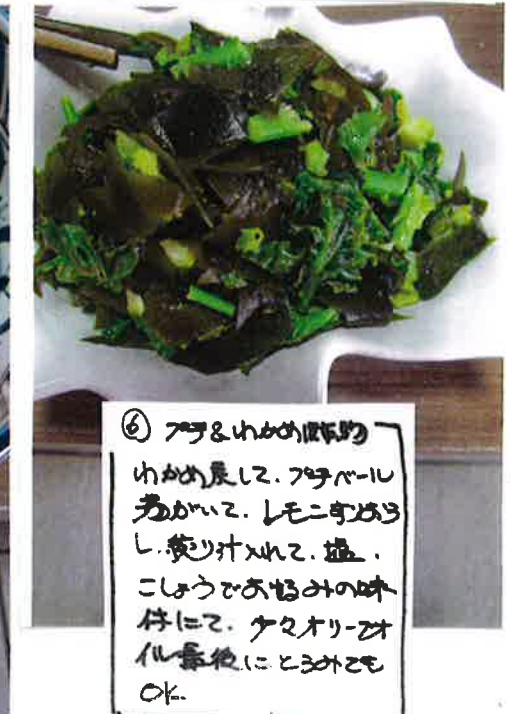 ⑥ プチ&わかめ
わかめ戻して、プチベール
し、絞り汁入れて、塩、
こしょうでお好みの味
付にて、少々オリーブオ
イル最後にとろみでも
OK.